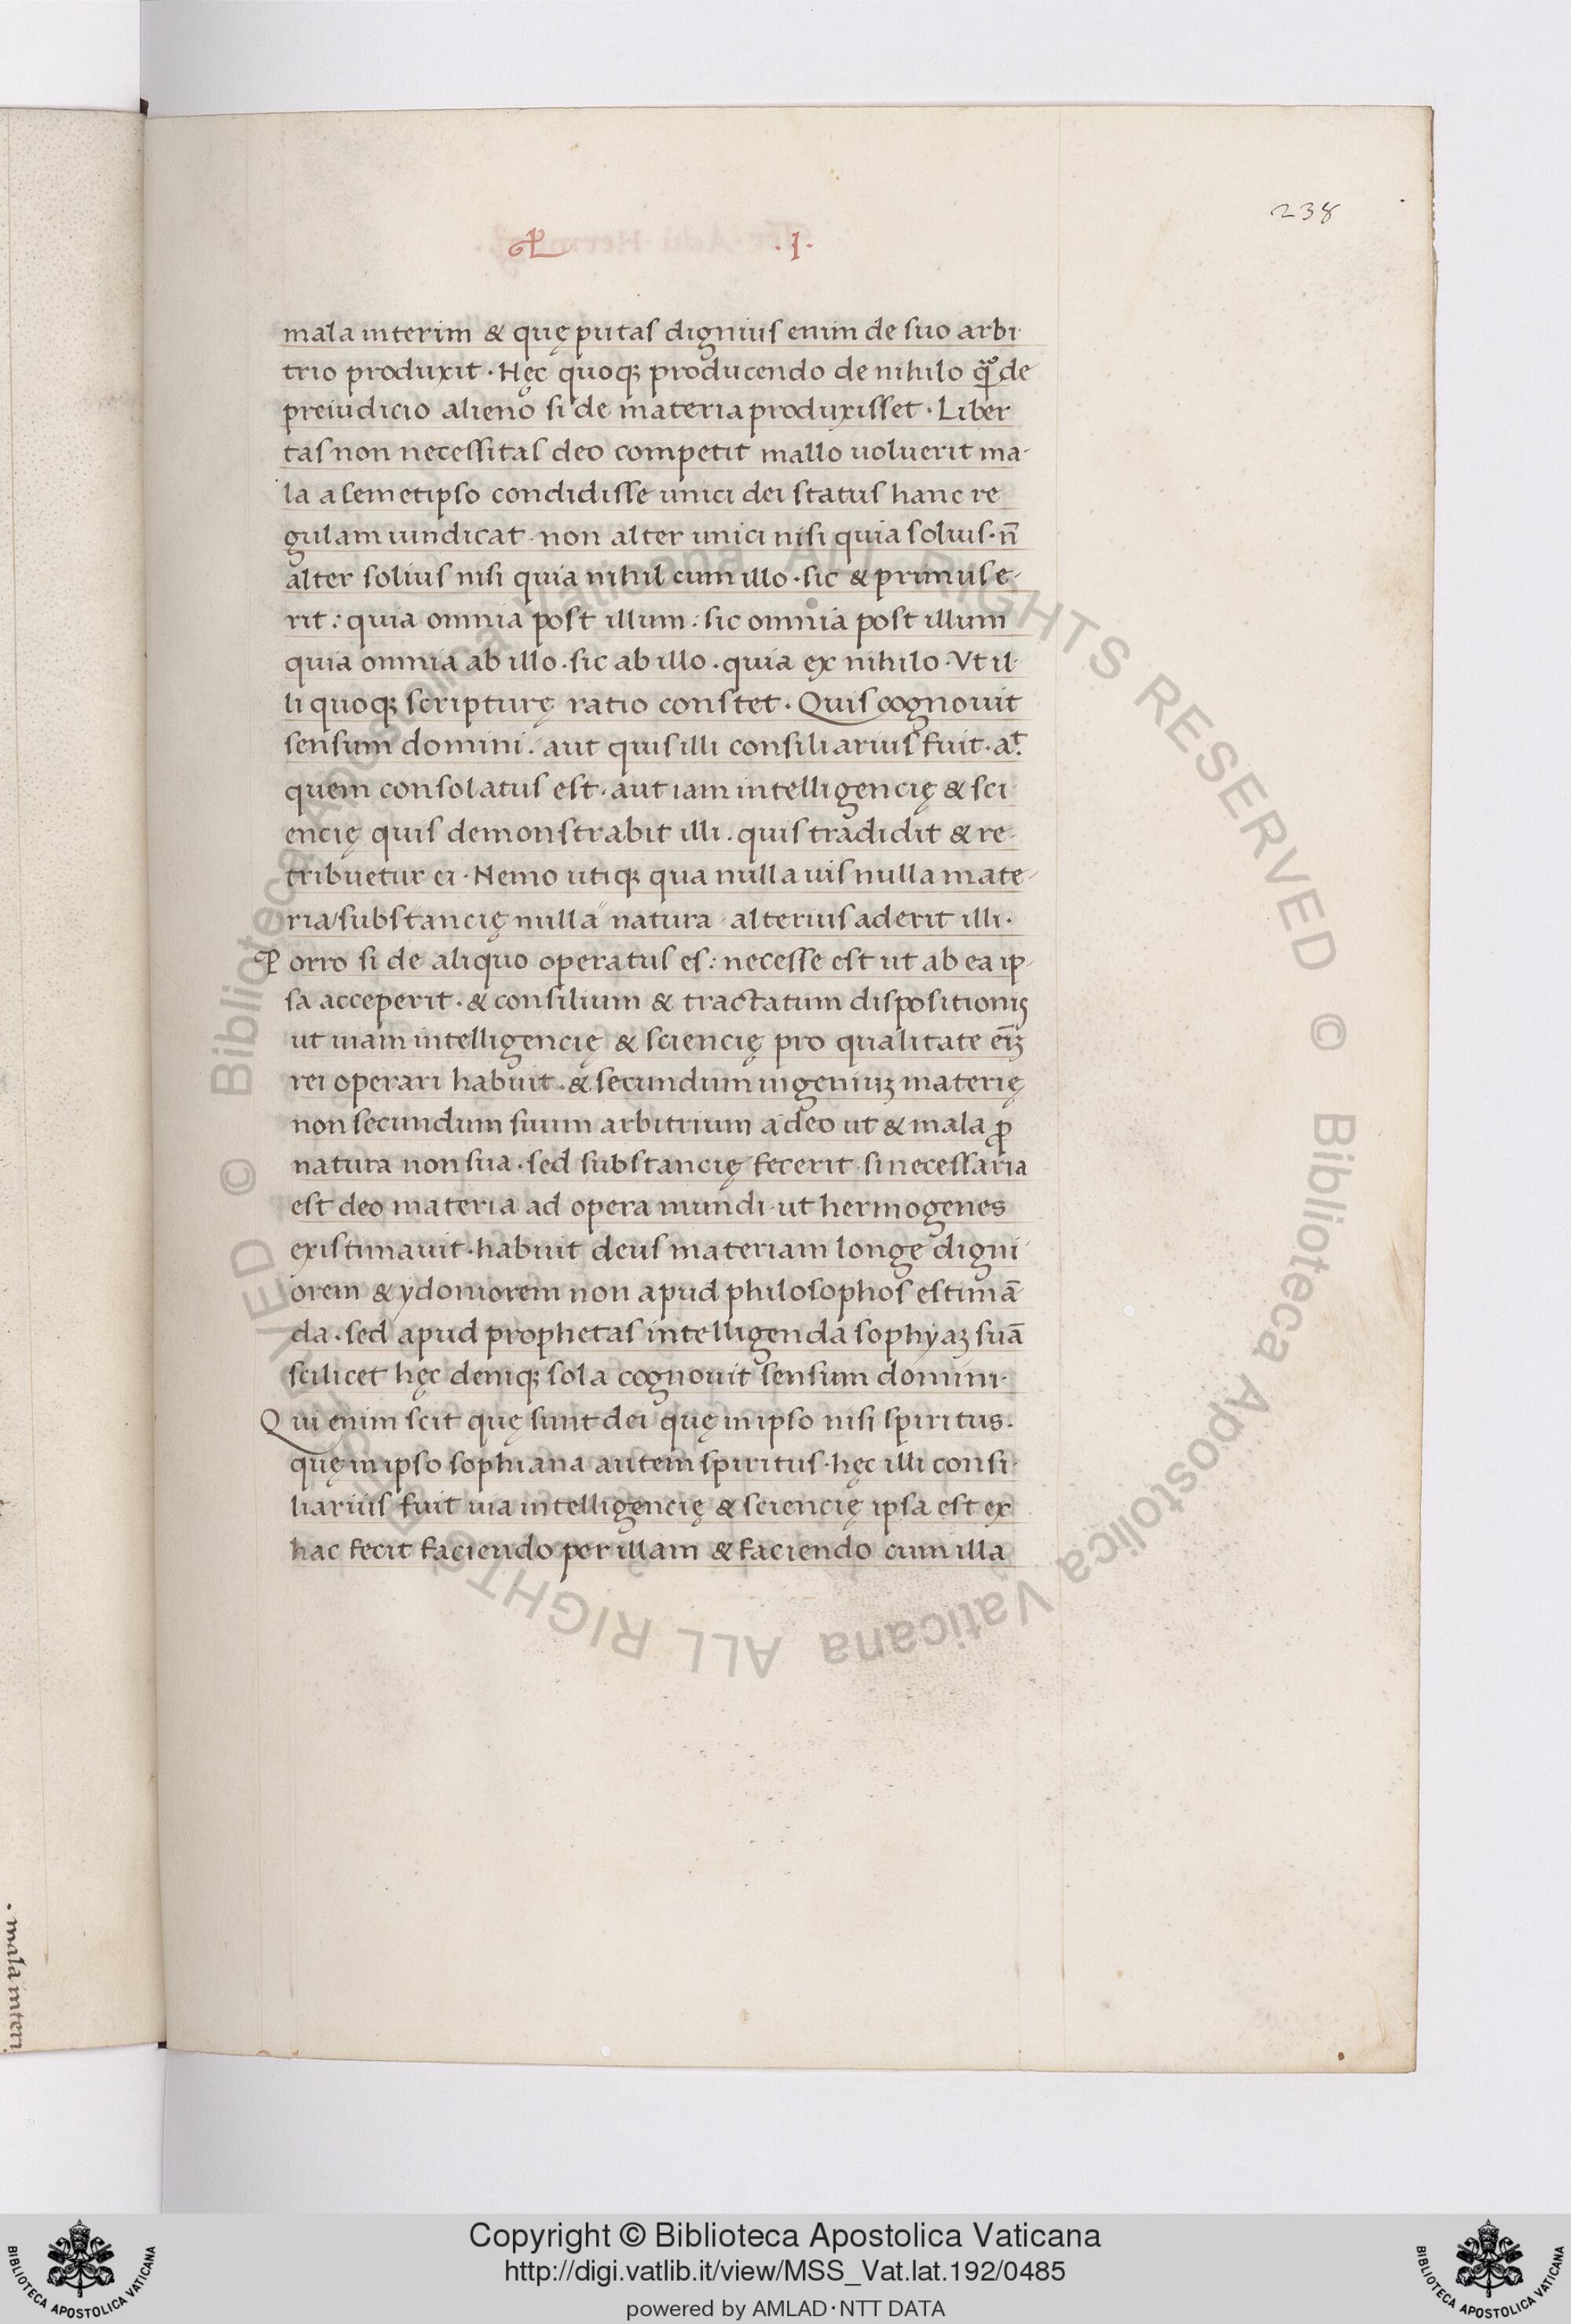 238
.I.
mala interim & quę putas dignius enim de suo arbi
trio produxit · Hęc quoqꝫ producendo de nihilo ꝙͦ de
preiudicio alieno si de materia produxisset · Liber
tas non necessitas deo competit mallo uoluerit ma-
la a semetipso condidisse unici dei status hanc re
gulam uindicat · non alter unici nisi quia solius · n̄
alter solius nisi quia nihil cum illo · sic & primus e-
rit : quia omnia post illum : sic omnia post illum
quia omnia ab illo · sic ab illo · quia ex nihilo · Vt il-
li quoqꝫ scripturę ratio constet · Quis cognouit
sensum domini · aut quis illi consiliarius fuit · aͭ
quem consolatus est · aut iam intelligencię & sci
encię quis demonstrabit illi · quis tradidit & re-
tribuetur ei · Nemo utiqꝫ qua nulla uis nulla mate-
ria/substancię nulla natura alterius aderit illi ·
Porro si de aliquo operatus es : necesse est ut ab ea ip-
sa acceperit · & consilium & tractatum dispositionis
ut uiam intelligencię & sciencię pro qualitate ei͞ꝫ
rei operari habuit · & secundum ingeniuꝫ materię
non secundum suum arbitrium adeo ut & mala ꝓ
natura non sua · sed substancię fecerit si necessaria
est deo materia ad opera mundi · ut hermogenes
existimauit · habuit deus materiam longe digni-
orem & ydoniorem non apud philosophos estimā
da · sed apud prophetas intelligenda sophyaꝫ suā
scilicet hęc deniqꝫ sola cognouit sensum domini ·
Qui enim scit quę sunt dei quę in ipso nisi spiritus ·
quę in ipso sophiana autem spiritus · hęc illi consi-
liarius fuit uia intelligencię & sciencię ipsa est ex
hac fecit faciendo per illam & faciendo cum illa
· mala interi
© Biblioteca Apostolica Vaticana ALL RIGHTS RESERVED © Biblioteca Apostolica Vaticana ALL RIGHTS RESERVED
Copyright © Biblioteca Apostolica Vaticana
http://digi.vatlib.it/view/MSS_Vat.lat.192/0485
powered by AMLAD·NTT DATA
BIBLIOTECA APOSTOLICA VATICANA
BIBLIOTECA APOSTOLICA VATICANA